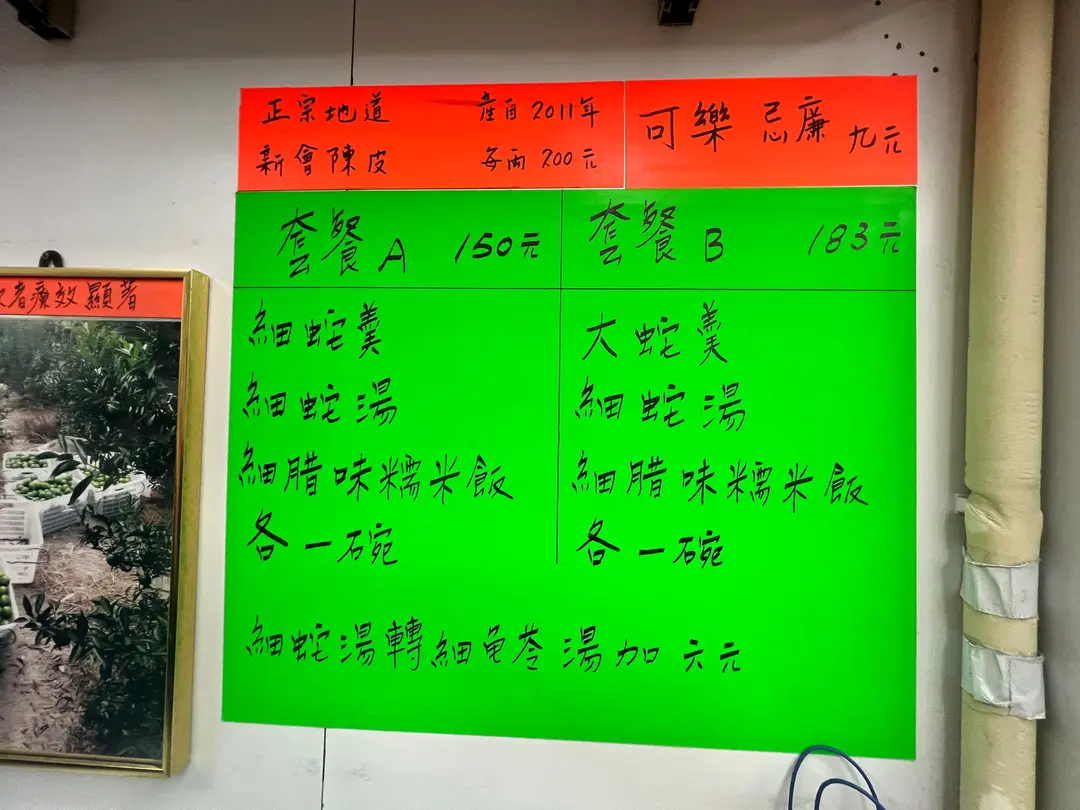 正宗地道 產自2011年
新會陳皮 每両200元
可樂 忌廉 九元
套餐A 150元
細蛇羹
細蛇湯
細腊味糯米飯
各一碗
套餐B 183元
大蛇羹
細蛇湯
細腊味糯米飯
各一碗
細蛇湯轉細龟苓湯加六元
者療效顯著